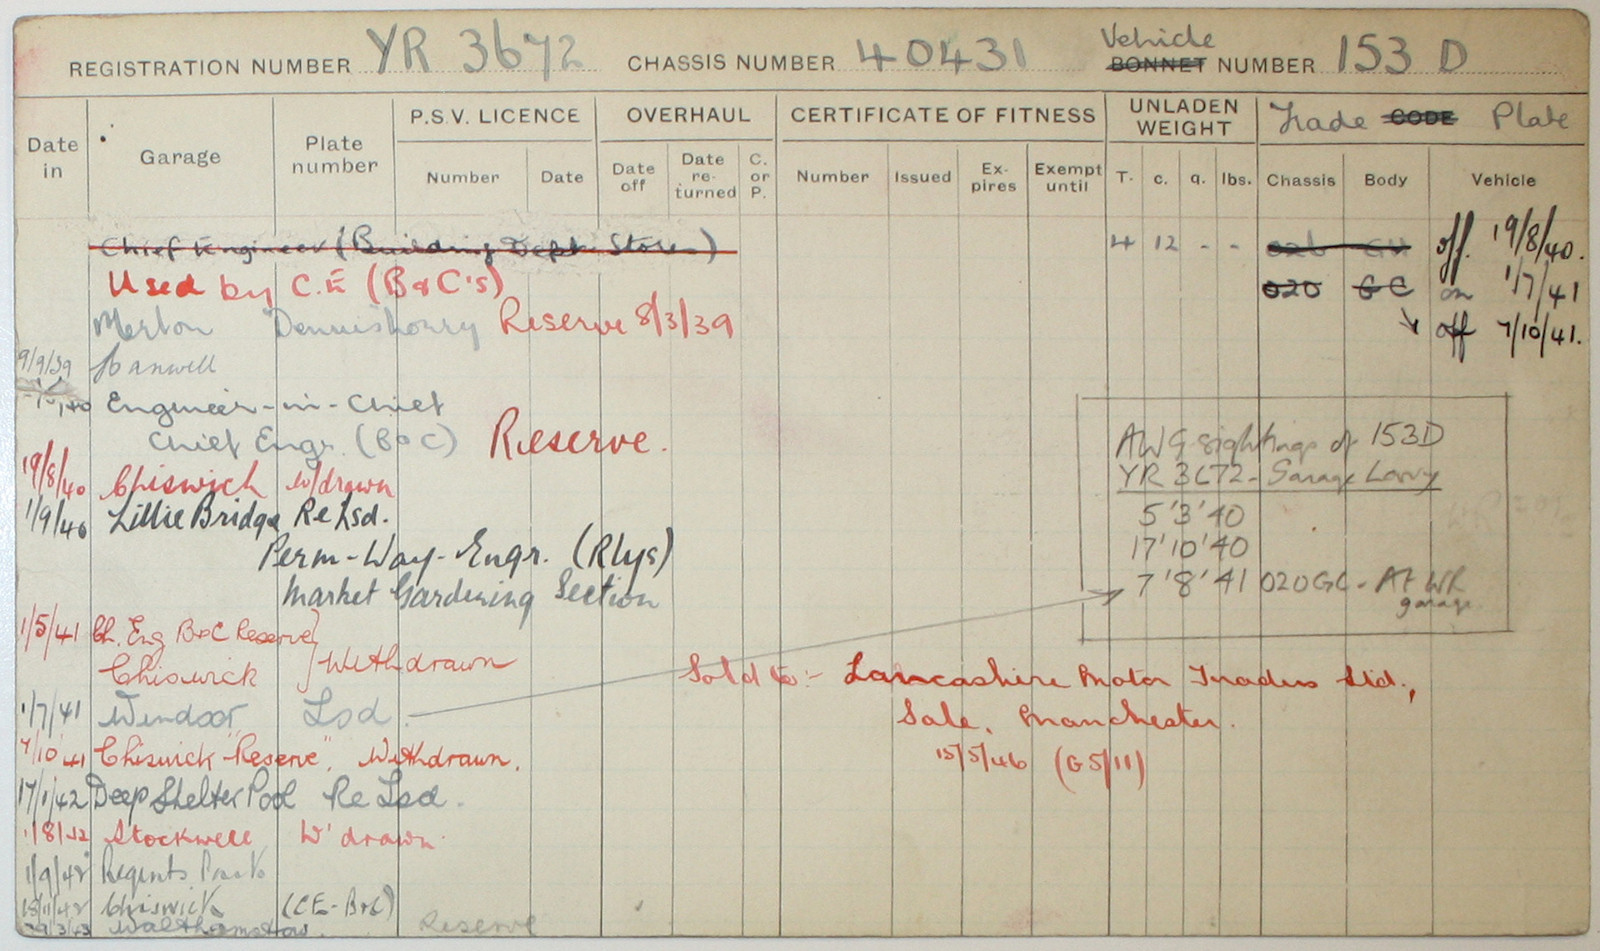 REGISTRATION NUMBER YR 3672 CHASSIS NUMBER 40431 Vehicle BONNET NUMBER 153 D
Date in Garage Plate number P.S.V. LICENCE OVERHAUL CERTIFICATE OF FITNESS UNLADEN WEIGHT Trade CODE Plate
Number Date Date off Date re-turned C. or P. Number Issued Ex-pires Exempt until T. c. q. lbs. Chassis Body Vehicle
Chief Engineer (Building Dept. Stores) 4 12 - - off 19/8/40.
Used by C.E (B & C's) 020 GC on 1/7/41
Merton Reserve 8/3/39 off 7/10/41.
9/9/39 Hanwell
Engineer-in-Chief
Chief Engr. (B & C) Reserve.
AWG sightings of 153D
YR 3672 - Garage Lorry
19/8/40 Chiswick W/drawn
5'3'40
1/9/40 Lillie Bridge Re Lsd.
17'10'40
Perm-Way-Engr. (Rlys)
7'8'41 020GC - AT WR garage
Market Gardening Section
1/5/41 Ch. Eng B & C Reserve
Chiswick Withdrawn
Sold to:- Lancashire Motor Traders Ltd.,
1/7/41 Windsor Lsd.
Sale, Manchester.
7/10/41 Chiswick "Reserve". Withdrawn.
15/5/46 (G5/11)
17/1/42 Deep Shelter Pool Re Lsd.
1/8/42 Stockwell W'drawn.
1/9/42 Regents Park
18/11/42 Chiswick (CE-B&C)
Walthamstow. Reserve